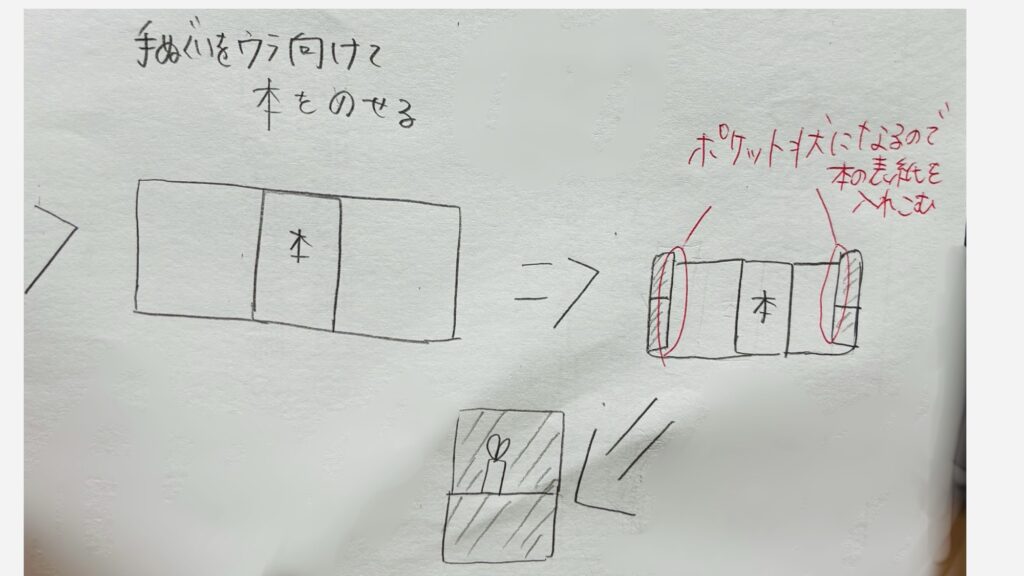 手ぬぐいをウラ向けて
本をのせる
ポケット状になるので
本の表紙を
入れこむ
本
本